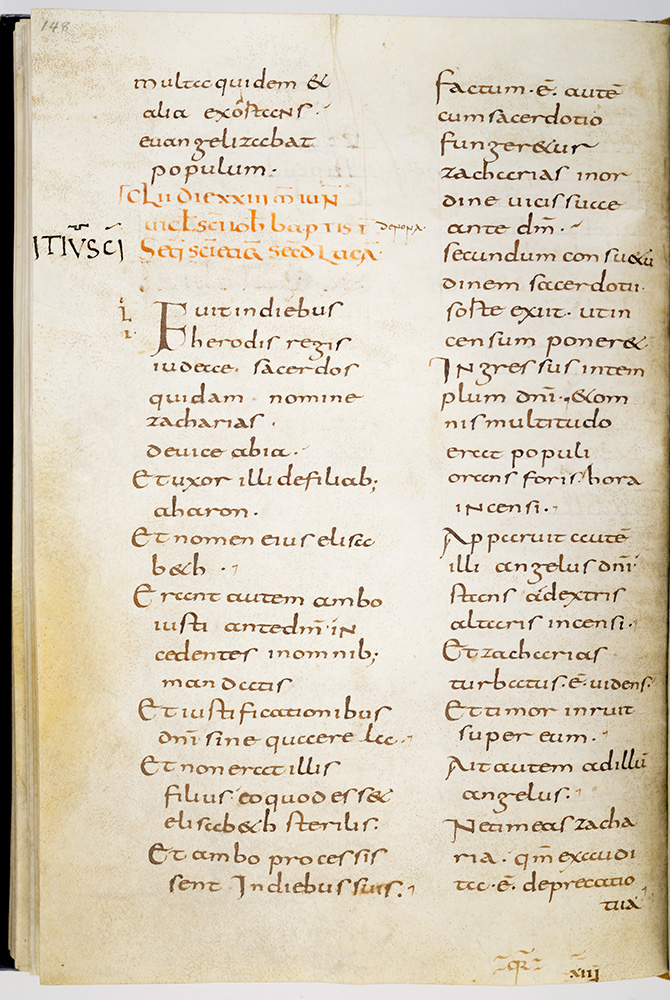 148
multa quidem &
alia exostans·
euangelizabat
populum·
CLII DIE XXIII M̄ IUN̄
Secd̄ Lucā
Fuit in diebus
herodis regis
iudaeae· sacerdos
quidam nomine
zacharias·
de uice abia·
Et uxor illi de filiab;
aharon·
Et nomen eius elisa
b&h·
Erant autem ambo
iusti ante dm̄· in
cedentes in omnib;
mandatis
Et iustificationibus
dnī· sine quaerella·
Et non erat illis
filius· eo quod ess&
elisab&h sterilis·
Et ambo processis
sent In diebus suis·
Factum·ē· autē
cum sacerdotio
funger&ur
zacharias in or
dine uicis suae
ante dm̄·
secundum consu&u
dinem sacerdotii·
sorte exiit· ut in
censum poner&
Ingressus in tem
plum dnī· & om
nis multitudo
erat populi
orans foris· hora
incensi·
Apparuit autē
illi angelus dnī·
stans a dextris
altaris incensi·
Et zacharias
turbatus·ē· uidens·
Et timor inruit
super eum·
Ait autem ad illū
angelus·
Ne timeas zacha
ria· qm̄ exaudi
ta·ē· deprecatio
tua
XIII